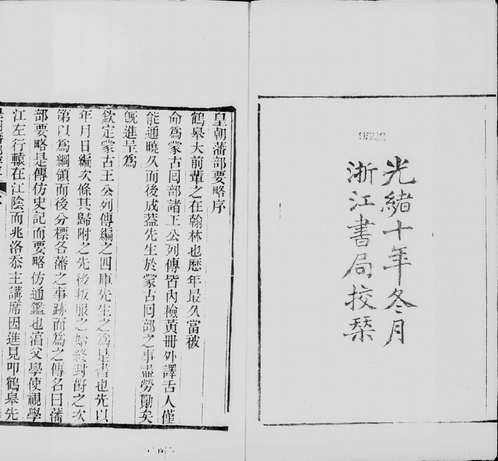 光緒十年冬月
浙江書局校栞
皇朝藩部要略序
鶴皋大前輩之在翰林也歷年最久當被
命為蒙古回部諸王公列傳皆內檢黃冊外譯舌人僅
能通曉久而後成蓋先生於蒙古回部之事盡勞勩矣
旣進呈為
欽定蒙古王公列傳編之四庫先生之為是書也先以
年月日編次條其歸附之先後叛服之始終封爵之次
第以為綱領而後分標各藩之事跡而為之傳名曰藩
部要略是傳仿史記而要略仿通鑑也淯父學使視學
江左行轅在江陰而兆洛忝主講席因進見叩鶴皋先